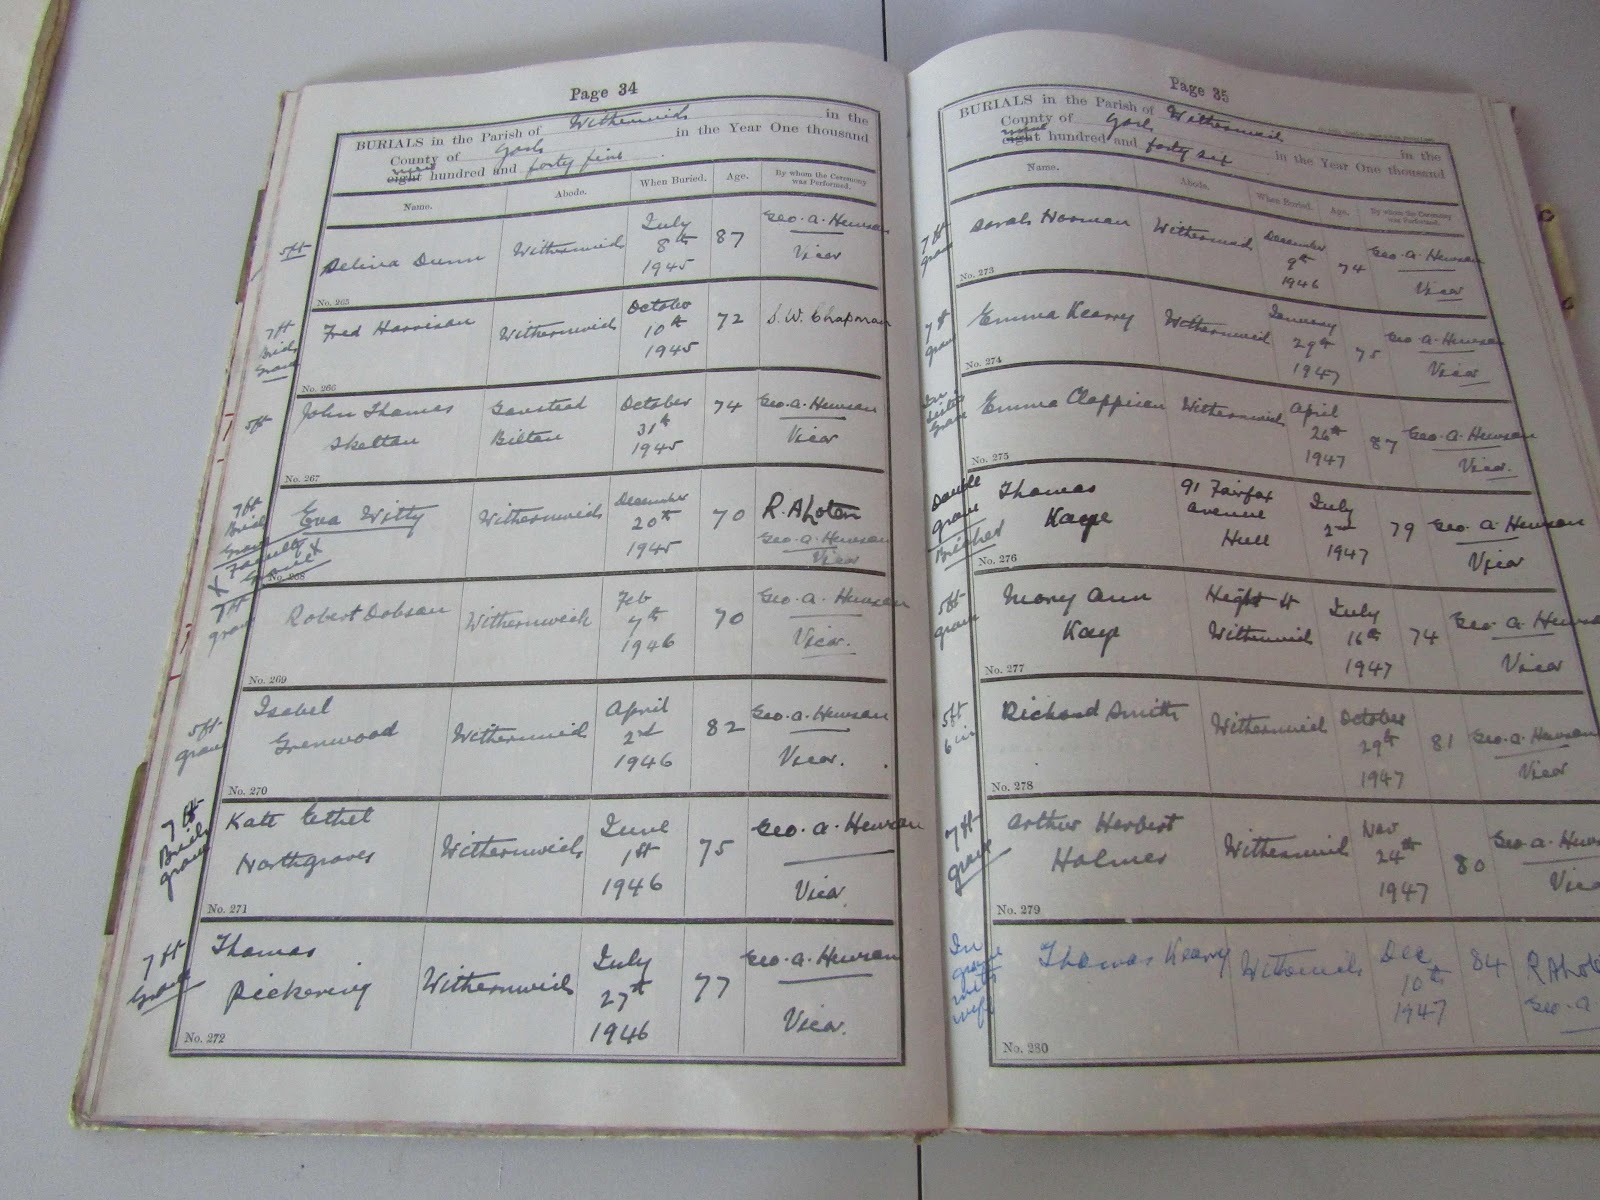 Page 34
BURIALS in the Parish of Withernwick in the
County of York in the Year One thousand
nine
eight hundred and forty five
Name. Abode. When Buried. Age. By whom the Ceremony was Performed.
5ft
Delina Dunn Withernwick July 8th 1945 87 Geo. A. Hewson Vicar
No. 265
7ft Brick Grave
Fred Harrison Withernwick October 10th 1945 72 S. W. Chapman
No. 266
5ft
John Thomas Skelton Ganstead Bilton October 31st 1945 74 Geo. A. Hewson Vicar
No. 267
7ft Brick Grave
X Faculty X Grave
Eva Witty Withernwick December 20th 1945 70 R. A. Loten Geo. A. Hewson Vicar
No. 268
7ft grave
Robert Dobson Withernwick Feb 7th 1946 70 Geo. A. Hewson Vicar.
No. 269
5ft grave
Isabel Grenwood Withernwick April 2nd 1946 82 Geo. A. Hewson Vicar.
No. 270
7ft Brick grave
Kate Ethel Northgraves Withernwick June 1st 1946 75 Geo. A. Hewson Vicar.
No. 271
7ft Grave
Thomas Pickering Withernwick July 27th 1946 77 Geo. A. Hewson Vicar.
No. 272
Page 35
BURIALS in the Parish of Withernwick in the
County of York in the Year One thousand
nine
eight hundred and forty six
Name. Abode. When Buried. Age. By whom the Ceremony was Performed.
7ft grave
Sarah Norman Withernwick December 9th 1946 74 Geo. A. Hewson Vicar
No. 273
7ft grave
Emma Kearry Withernwick January 29th 1947 75 Geo. A. Hewson Vicar
No. 274
In Sister's Grave
Emma Clappison Withernwick April 26th 1947 87 Geo. A. Hewson Vicar.
No. 275
Double grave Bricked
Thomas Kaye 91 Fairfax Avenue Hull July 2nd 1947 79 Geo. A. Hewson Vicar
No. 276
5ft grave
Mary Ann Kaye Hight St Withernwick July 16th 1947 74 Geo. A. Hewson Vicar
No. 277
5ft 6 in
Richard Smith Withernwick October 29th 1947 81 Geo. A. Hewson Vicar
No. 278
7ft grave
Arthur Herbert Holmes Withernwick Nov 24th 1947 80 Geo. A. Hews Vica
No. 279
In grave with wife
Thomas Kearry Withernwick Dec 10th 1947 84 R A Lot Geo. A
No. 280